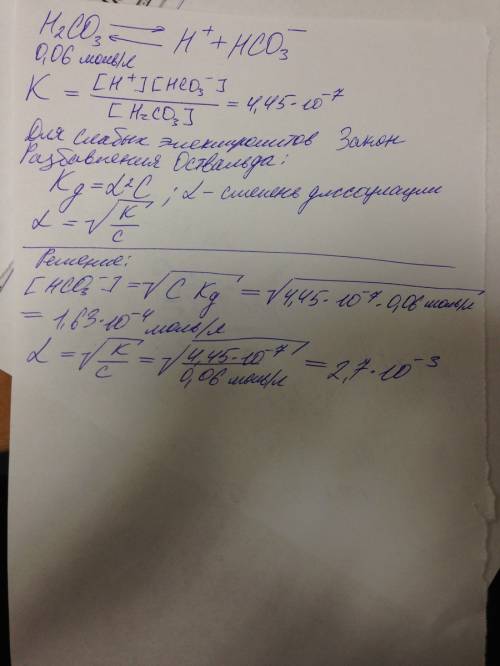 H₂CO₃ ⇄ H⁺ + HCO₃⁻
0,06 моль/л
K = [H⁺][HCO₃⁻] / [H₂CO₃] = 4,45·10⁻⁷
Для слабых электролитов Закон
Разбавления Оствальда:
Kд = α²C ; α - степень диссоциации
α = √(K/C)
Решение:
[HCO₃⁻] = √(C Kд) = √(4,45·10⁻⁷·0,06 моль/л)
= 1,63·10⁻⁴ моль/л
α = √(K/C) = √(4,45·10⁻⁷ / 0,06 моль/л) = 2,7·10⁻³